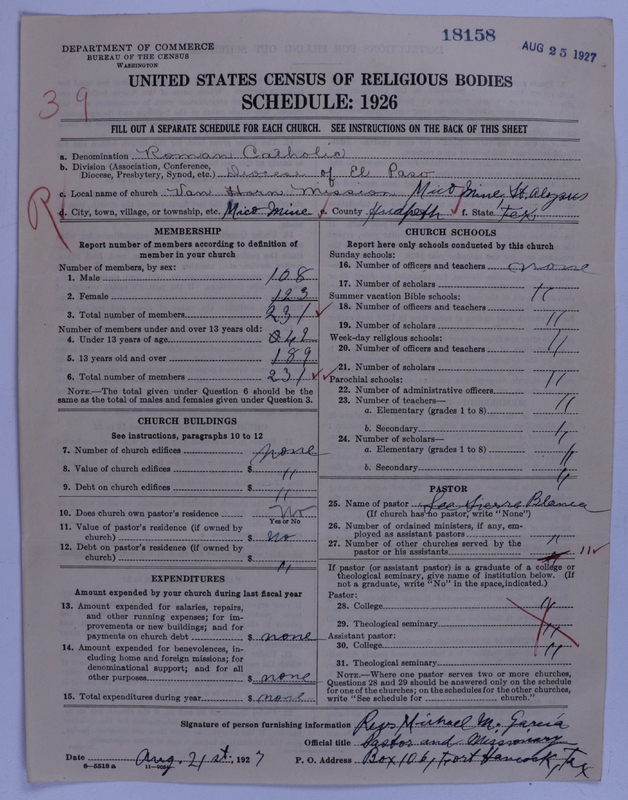 18158
AUG 25 1927
DEPARTMENT OF COMMERCE
BUREAU OF THE CENSUS
WASHINGTON
UNITED STATES CENSUS OF RELIGIOUS BODIES
SCHEDULE: 1926
39
FILL OUT A SEPARATE SCHEDULE FOR EACH CHURCH. SEE INSTRUCTIONS ON THE BACK OF THIS SHEET
a. Denomination Roman Catholic
b. Division (Association, Conference, Diocese, Presbytery, Synod, etc.) Diocese of El Paso
c. Local name of church Van Horn Mission Mico Mine, St. Aloysus
R
d. City, town, village, or township, etc. Mico Mine e. County Hudpeth f. State Tex,
MEMBERSHIP
Report number of members according to definition of
member in your church
Number of members, by sex:
1. Male 108
2. Female 123
3. Total number of members 231 ✓
Number of members under and over 13 years old:
4. Under 13 years of age 42
5. 13 years old and over 189
6. Total number of members 231 ✓✓
NOTE.—The total given under Question 6 should be the
same as the total of males and females given under Question 3.
CHURCH BUILDINGS
See instructions, paragraphs 10 to 12
7. Number of church edifices none
8. Value of church edifices $ "
9. Debt on church edifices $ "
10. Does church own pastor's residence? No
Yes or No
11. Value of pastor's residence (if owned by
church) $ No
12. Debt on pastor's residence (if owned by
church) $ "
EXPENDITURES
Amount expended by your church during last fiscal year
13. Amount expended for salaries, repairs,
and other running expenses; for im-
provements or new buildings; and for
payments on church debt $ none
14. Amount expended for benevolences, in-
cluding home and foreign missions; for
denominational support; and for all
other purposes $ none
15. Total expenditures during year $ none
CHURCH SCHOOLS
Report here only schools conducted by this church
Sunday schools:
16. Number of officers and teachers none
17. Number of scholars "
Summer vacation Bible schools:
18. Number of officers and teachers "
19. Number of scholars "
Week-day religious schools:
20. Number of officers and teachers "
21. Number of scholars "
Parochial schools:
22. Number of administrative officers "
23. Number of teachers—
a. Elementary (grades 1 to 8) "
b. Secondary "
24. Number of scholars—
a. Elementary (grades 1 to 8) "
b. Secondary "
PASTOR
25. Name of pastor See Sierra Blanca
(If church has no pastor, write "None")
26. Number of ordained ministers, if any, em-
ployed as assistant pastors "
27. Number of other churches served by the
pastor or his assistants 11 ✓
If pastor (or assistant pastor) is a graduate of a college or
theological seminary, give name of institution below. (If
not a graduate, write "No" in the space indicated.)
Pastor:
28. College "
29. Theological seminary "
Assistant pastor:
30. College "
31. Theological seminary
NOTE.—Where one pastor serves two or more churches,
Questions 28 and 29 should be answered only on the schedule
for one of the churches; on the schedules for the other churches,
write "See schedule for ........ church."
Signature of person furnishing information Rev. Michael M. Garcia
Official title Pastor and Missionary
Date Aug. 21st, 1927 P. O. Address Box 106, Fort Hancock, Tex
8—5518 a